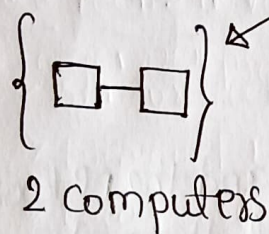 2 computers